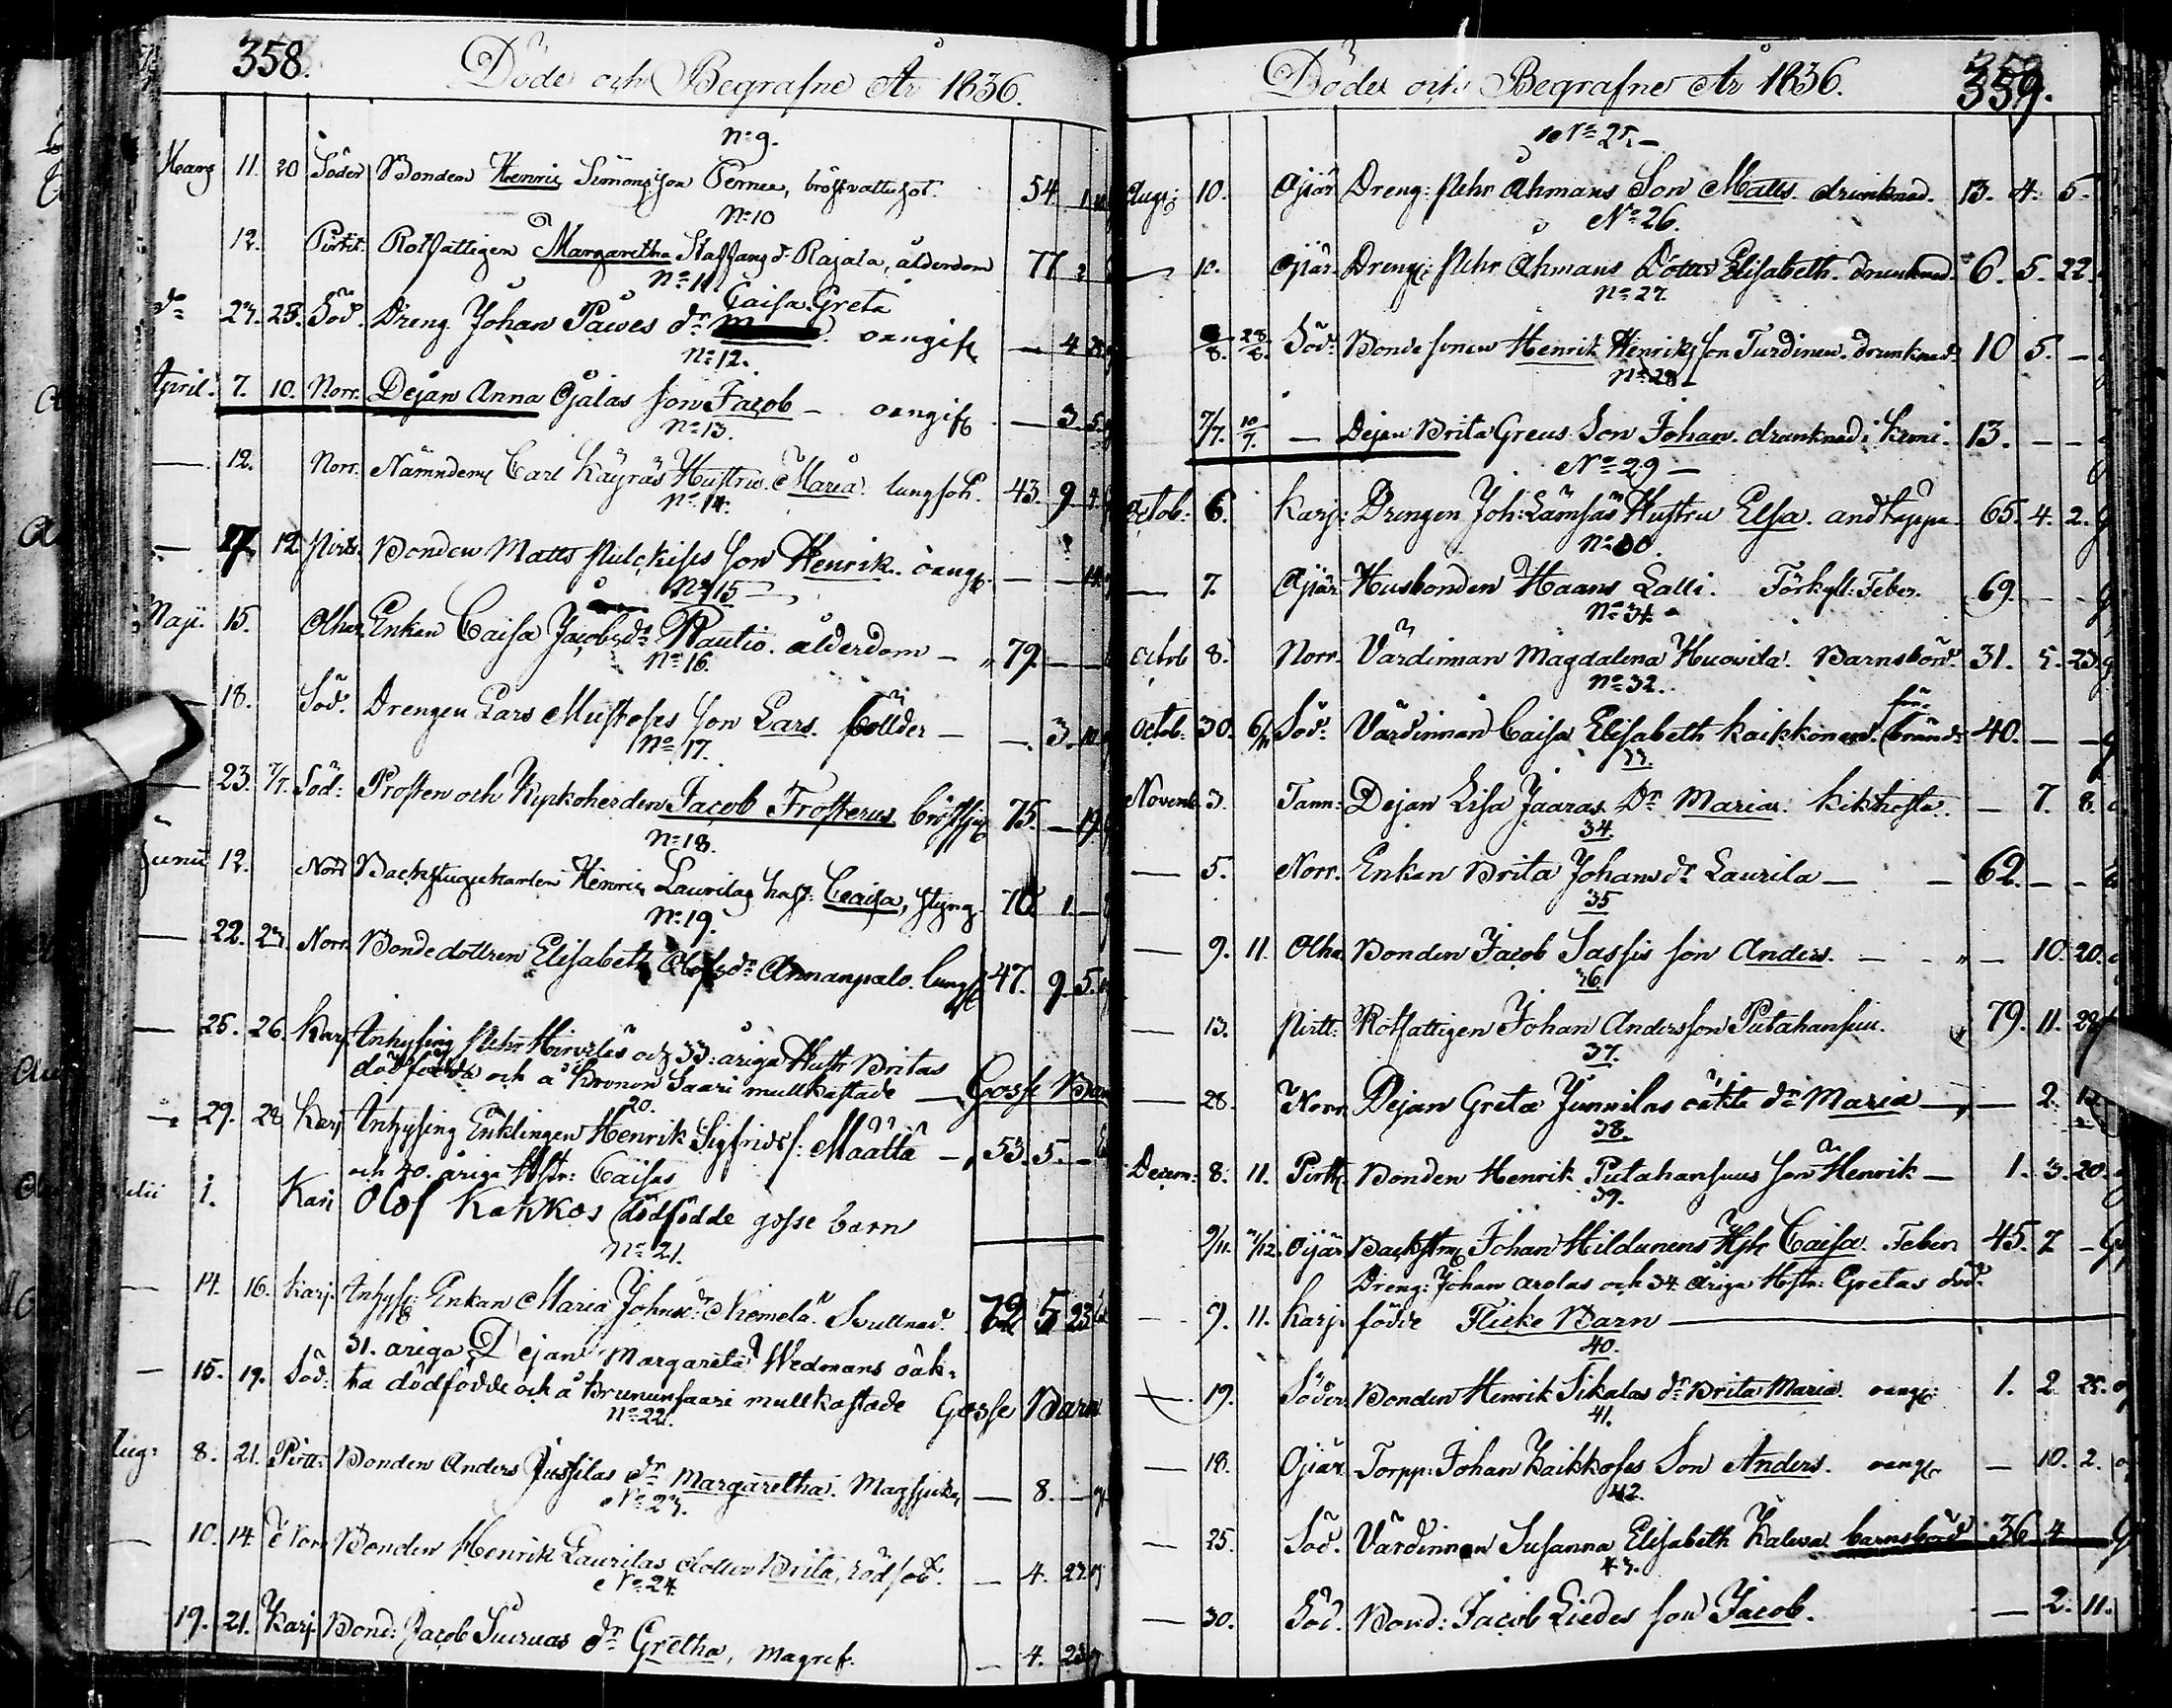 358.
Döde och Begrafne År 1836.
No 9.
11. 20 Söder Bonden Henric Simonsson Pernu, bröstvattusot. 54
No 10
12. Rotfattigen Margaretha Staffansdr Rajala, ålderdom 77
No 11
Caisa Greta
27. 28. Söd. Dreng Johan Pawes dr oangif — 4
No 12.
April. 7. 10. Norr. Dejan Anna Ojalas son Jacob — oangif — 3. 5.
No 13.
— 12. Norr. Nämndem Carl Käyräs Hustru Maria. lungsot. 43. 9
No 14.
— 27. 12. Bonden Matts Pulckises son Henrik. oangf. —
No 15
Maji. 15. Olhav Enkan Caisa Jacobsdr Rautio. ålderdom — 79. —
No 16.
18. Söd. Drengen Lars Mustoses son Lars. — 3.
No 17.
— 23. 7/7. Söd: Prosten och Kyrkoherden Jacob Frosterus 75. — 19
No 18.
Junii 12. Norr Henric Laurilas Caisa, styng. 70. 1. —
No 19.
— 22. 23. Norr. Bondedottren Elisabeth Olofsdr Annanpalo. lungs 47. 9. 5.
— 25. 26. Karj. Inhysing Pehr och 33: åriga Hustr Britas
dödfödda och å Kronon Saari mullkastade — Gosse Barn
20.
29. 28 Karj Inhysing Enklingen Henrik Sigfridss: Määttä — 53. 5. —
och 40. åriga Hstr: Caisas
1. Karj Olof Kakkos dödfödde gosse barn
No 21.
— 14. 16. Karj. Inhys: Enkan Maria Johansdr Svullnad. 72 5 23
31. åriga Dejan Margareta Wedmans oäk-
— 15. 19. Söd: ta dödfödde och å Krununsaari mullkastade Gosse Barn
No 22.
Aug: 8. 21. Pirtt: Bonden Anders Jussilas dr Margaretha. Magsjuka — 8. —
No 23.
— 10. 14. Norr Bonden Henrik Laurilas dotter Brita, rödsot. — 4. 27
No 24.
19. 21. Karj. Bond: Jacob Suruas dr Gretha, magref. — 4. 23
Döde och Begrafne År 1836.
359.
No 25. —
Aug: 10. Ojiär Dreng: Pehr Åhmans Son Matts. drunknad. 13. 4. 5.
No 26.
— 10. Ojiär. Dreng: Pehr Åhmans Dotter Elisabeth. drunknad. 6. 5. 22.
No 27.
8. 28/8. Söd: Bondesonen Henrik Henriksson Turdinen. drunknad. 10 5. —
No 28
7/7. 10/7. — Dejan Brita Greus Son Johan. drunknad i Kemi. 13. — —
No 29 —
Octob: 6. Karj: Drengen Joh: Lämsäs Hustru Elsa. andtäppa. 65. 4. 2.
No 30.
— 7. Ojiär Husbonden Haans Lalli. Förkyl: Feber. 69. — —
No 31
Octob 8. Norr. Värdinnan Magdalena Huovila. Barnsbörd. 31. 5. 23.
No 32.
Octob: 30. Söd: Värdinnan Caisa Elisabeth Kaikkonen. 40. — —
33.
Novemb 3. Tann: Dejan Lisa Jaaras Dr Maria: Kikhosta. — 7. 8.
34.
— 5. Norr. Enkan Brita Johansdr Laurila — — 62. — —
35
— 9. 11. Olha Bonden Jacob Sassis son Anders. — — 10. 20.
36.
— 13. Pirtt: Rotfattigen Johan Andersson Putahansuu. 79. 11. 28
37.
— 28. Norr Dejan Greta Junnilas oäkta dr Maria — — 2.
38.
Decem: 8. 11. Pirtt: Bonden Henrik Putahansuus son Henrik — 1. 3. 20.
39.
9/11. Ojiär Backstug Johan Hildunens Hstr Caisa. Feber 45. 7 —
Dreng: Johan Arolas och 34. åriga Hstr: Gretas död-
— 9. 11. Karj. födde Flicke Barn —
40.
— 19. Söder Bonden Henrik Sikalas dr Brita Maria. oangf: 1. 2 25.
41.
— 18. Ojiär. Torpp: Johan Kaikkoses Son Anders. oangf — 10. 2.
42.
— 25. Söd. Värdinnan Susanna Elisabeth Kaleva barnsbörd 36 4
43.
— 30. Söd. Bond: Jacob Liedes son Jacob. — 2. 11.